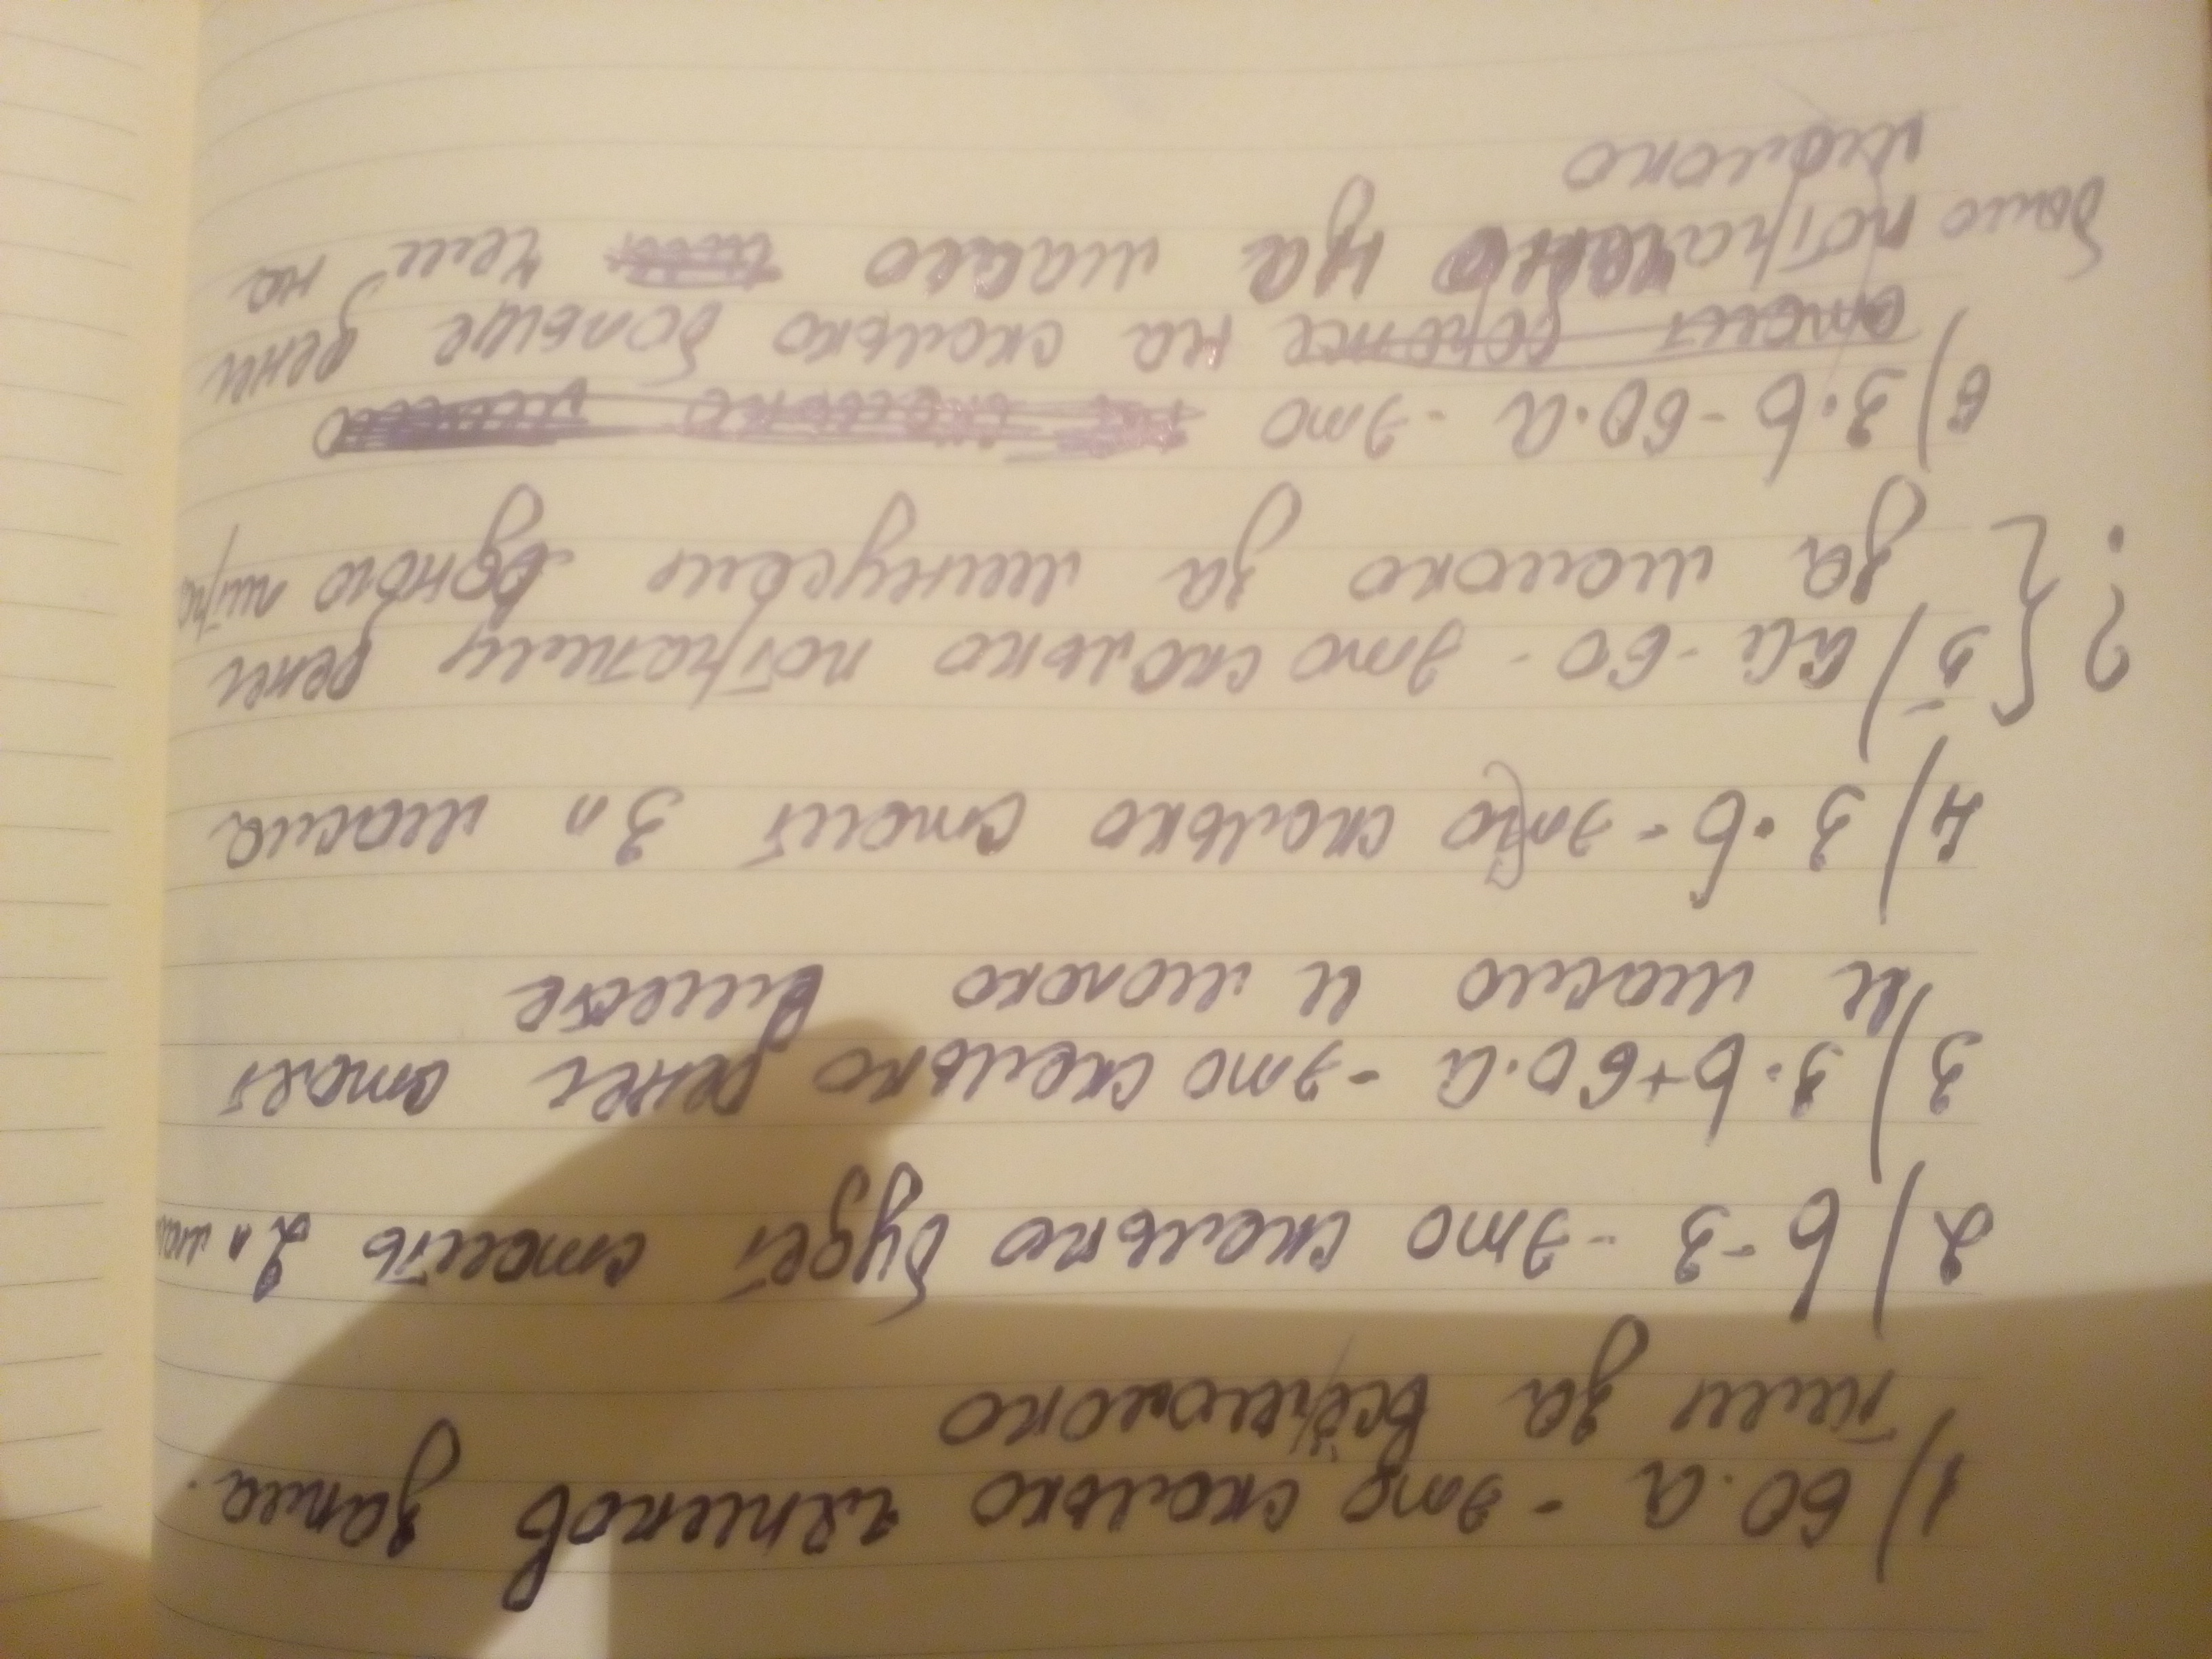 1) 60·a - это сколько человек запла-
тили за всё молоко
2) b - 3 - это сколько будет стоить 2л
3) 3·b+60·a - это сколько денег стоят
и масло и молоко вместе
4) 3·b - это сколько стоит 3л масла
5) a - 60 - это сколько потратили денег
за молоко за минусом одного литра
?
6) 3·b - 60·a - это
на сколько больше денег
было потрачено на масло чем на
молоко